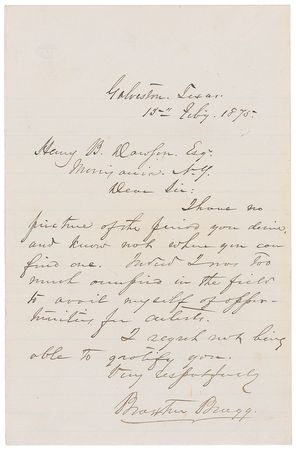 Galveston. Texas.
15th Feby. 1875.
Henry B. Dawson. Esqr.
Morrisania. N.Y.
Dear Sir:
I have no
picture of the period you desire,
and know not where you can
find one. Indeed I was too
much occupied in the field
to avail myself of oppor-
tunities for artists.
I regret not being
able to gratify you.
Very respectfully
Braxton Bragg.